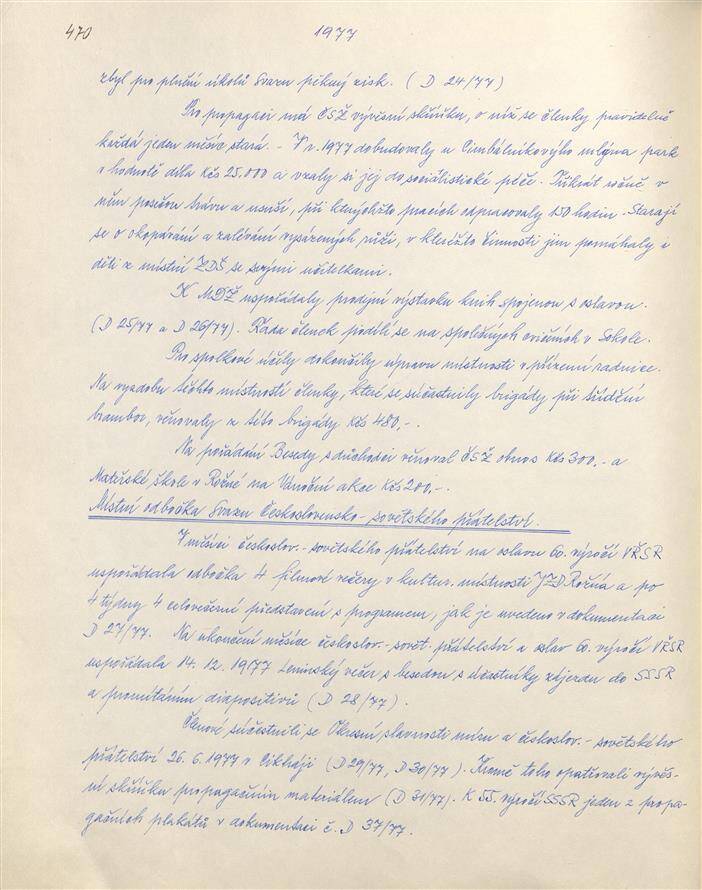 470
1977
zbyl pro plnění úkolů Svazu pěkný zisk. (D 24/77)
Pro propagaci má ČSŽ vývěsní skříňku, o níž se členky pravidelně
každá jeden měsíc stará. - V r. 1977 dobudovaly u Cimbálníkovýho mlýna park
v hodnotě díla Kčs 25.000 a vzaly si jej do socialistické péče. Třikrát ročně v
něm posečou trávu a usuší, při kterýchžto pracích odpracovaly 150 hodin. Starají
se o okopávání a zalévání vysázených růží, v kteréžto činnosti jim pomáhaly i
děti z místní ZDŠ se svými učitelkami.
K MDŽ uspořádaly prodejní výstavku knih spojenou s oslavou.
(D 25/77 a D 26/77). Řada členek podílí se na společných cvičeních v Sokole.
Pro spolkové účely dokončily úpravu místnosti v přízemí radnice.
Na vyzdobu těchto místností členky, které se súčastnily brigády při třídění
brambor, věnovaly z této brigády Kčs 480,-.
Na pořádání Besedy s důchodci věnoval ČSŽ obnos Kčs 300,- a
Mateřské škole v Rožné na Vánoční akce Kčs 200,-.
Místní odbočka Svazu Československo - sovětského přátelství.
V měsíci českoslov. - sovětského přátelství na oslavu 60. výročí VŘSR
uspořádala odbočka 4 filmové večery v kultur. místnosti JZD Rožná a po
4 týdny 4 celovečerní představení s programem, jak je uvedeno v dokumentaci
D 27/77. Na ukončení měsíce českoslov. - sovět. přátelství a oslav 60. výročí VŘSR
uspořádala 14. 12. 1977 Leninský večer s besedou s účastníky zájezdu do SSSR
a promítáním diapositivů (D 28/77).
Členové súčestnili se Okresní slavnosti míru a českoslov. - sovětského
přátelství 26. 6. 1977 v Cikháji (D 29/77, D 30/77). Kromě toho opatřovali vývěs-
ní skříňku propagačním materiálem (D 31/77). K 55. výročí SSSR jeden z propa-
gačních plakátů v dokumentaci č. D 37/77.